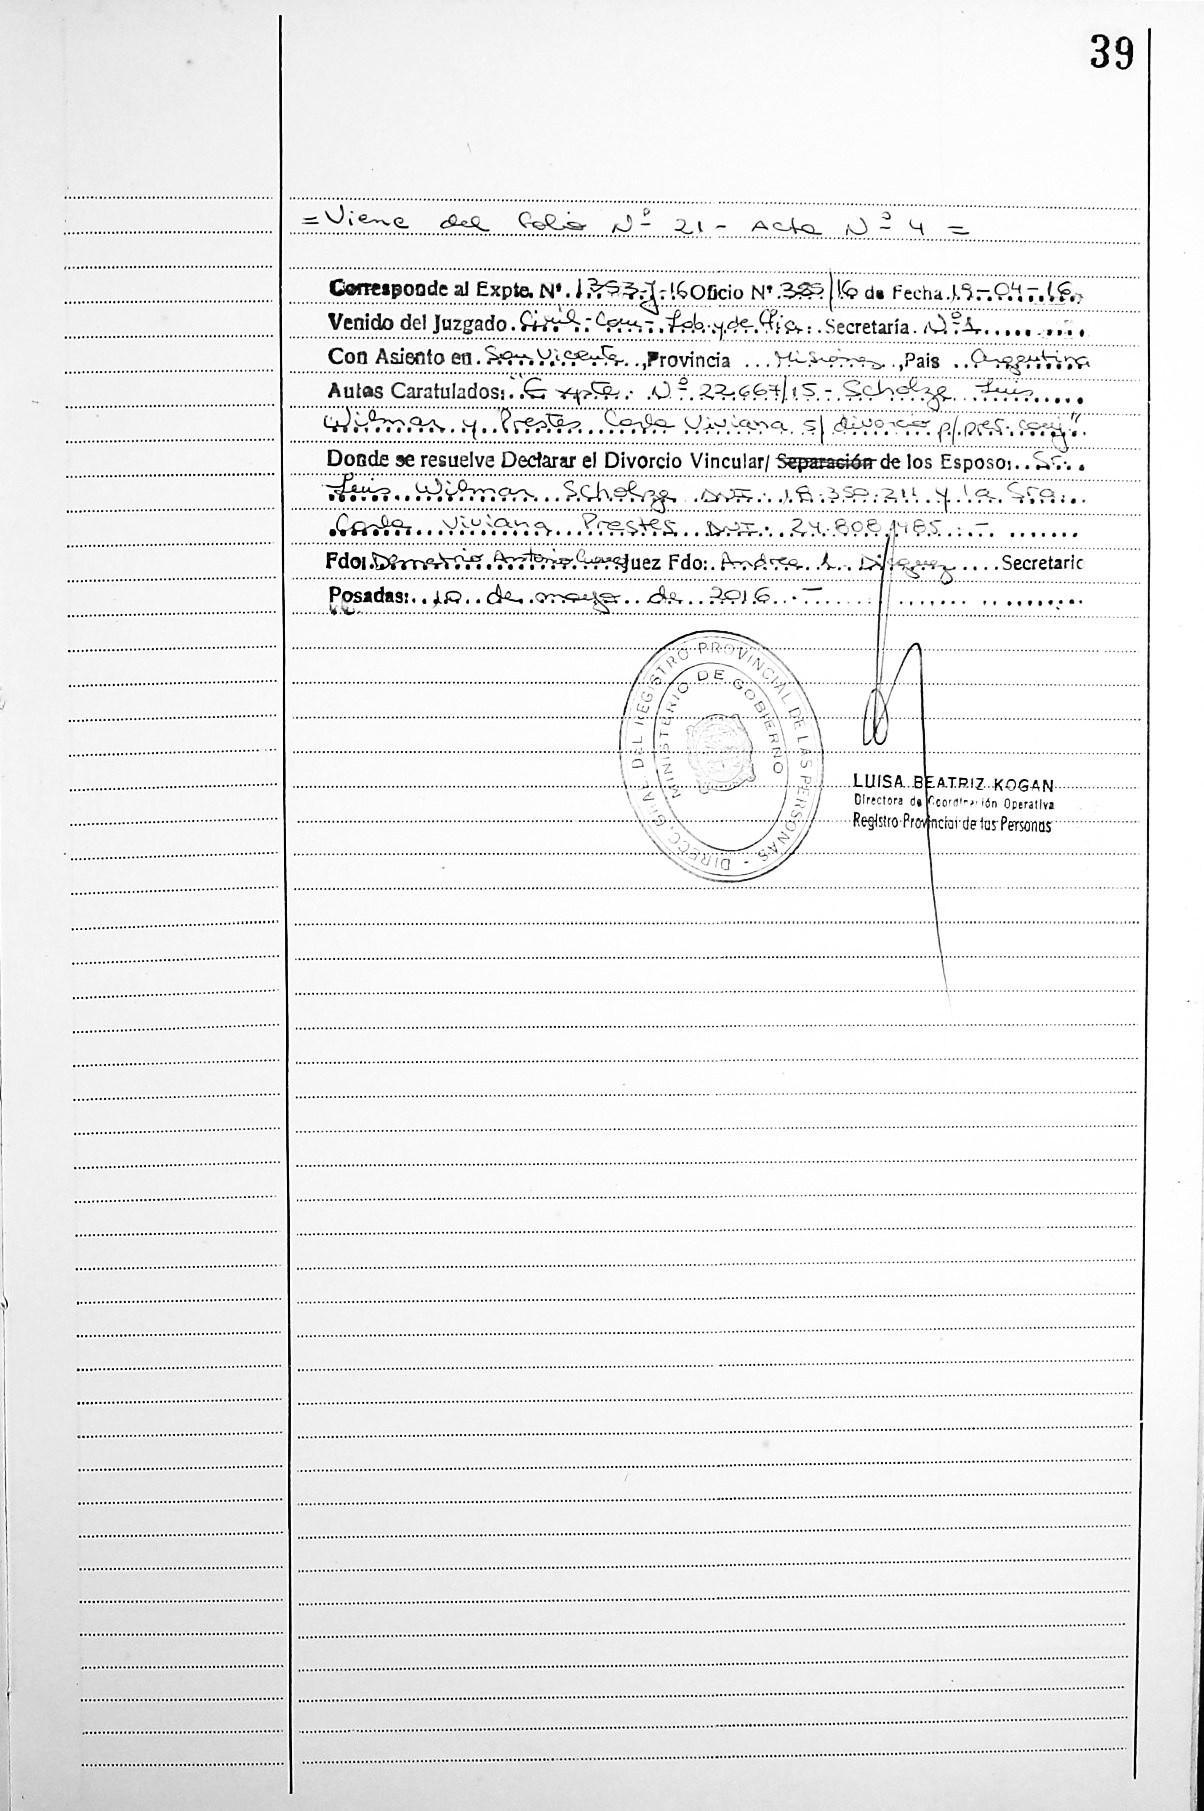 39
= Viene del folio Nº 21 - Acta Nº 4 =
Corresponde al Expte. Nº. 1353-J-16 Oficio Nº. 385/16 de Fecha 19-04-16
Venido del Juzgado. Civil-Com-Lab. y de Flia. Secretaría. Nº 1
Con Asiento en. San Vicente, Provincia Misiones, Pais Argentina
Autos Caratulados: "Expte. Nº 22.667/15 - Scholze Luis
Wilmar y Prestes Carla Viviana s/ divorcio p/ pres. conj"
Donde se resuelve Declarar el Divorcio Vincular/ Separación de los Esposo: Sr.
Luis Wilmar Scholze DNI. 18.350.211 y la Sra.
Carla Viviana Prestes DNI. 24.808.485.-
Fdo: Demetrio Antonio Juez Fdo: Andrea L. Secretario
Posadas: 10 de mayo de 2016.-
DIRECC. GRAL DEL REGISTRO PROVINCIAL DE LAS PERSONAS -
MINISTERIO DE GOBIERNO
LUISA BEATRIZ KOGAN
Directora de Coordinación Operativa
Registro Provincial de las Personas